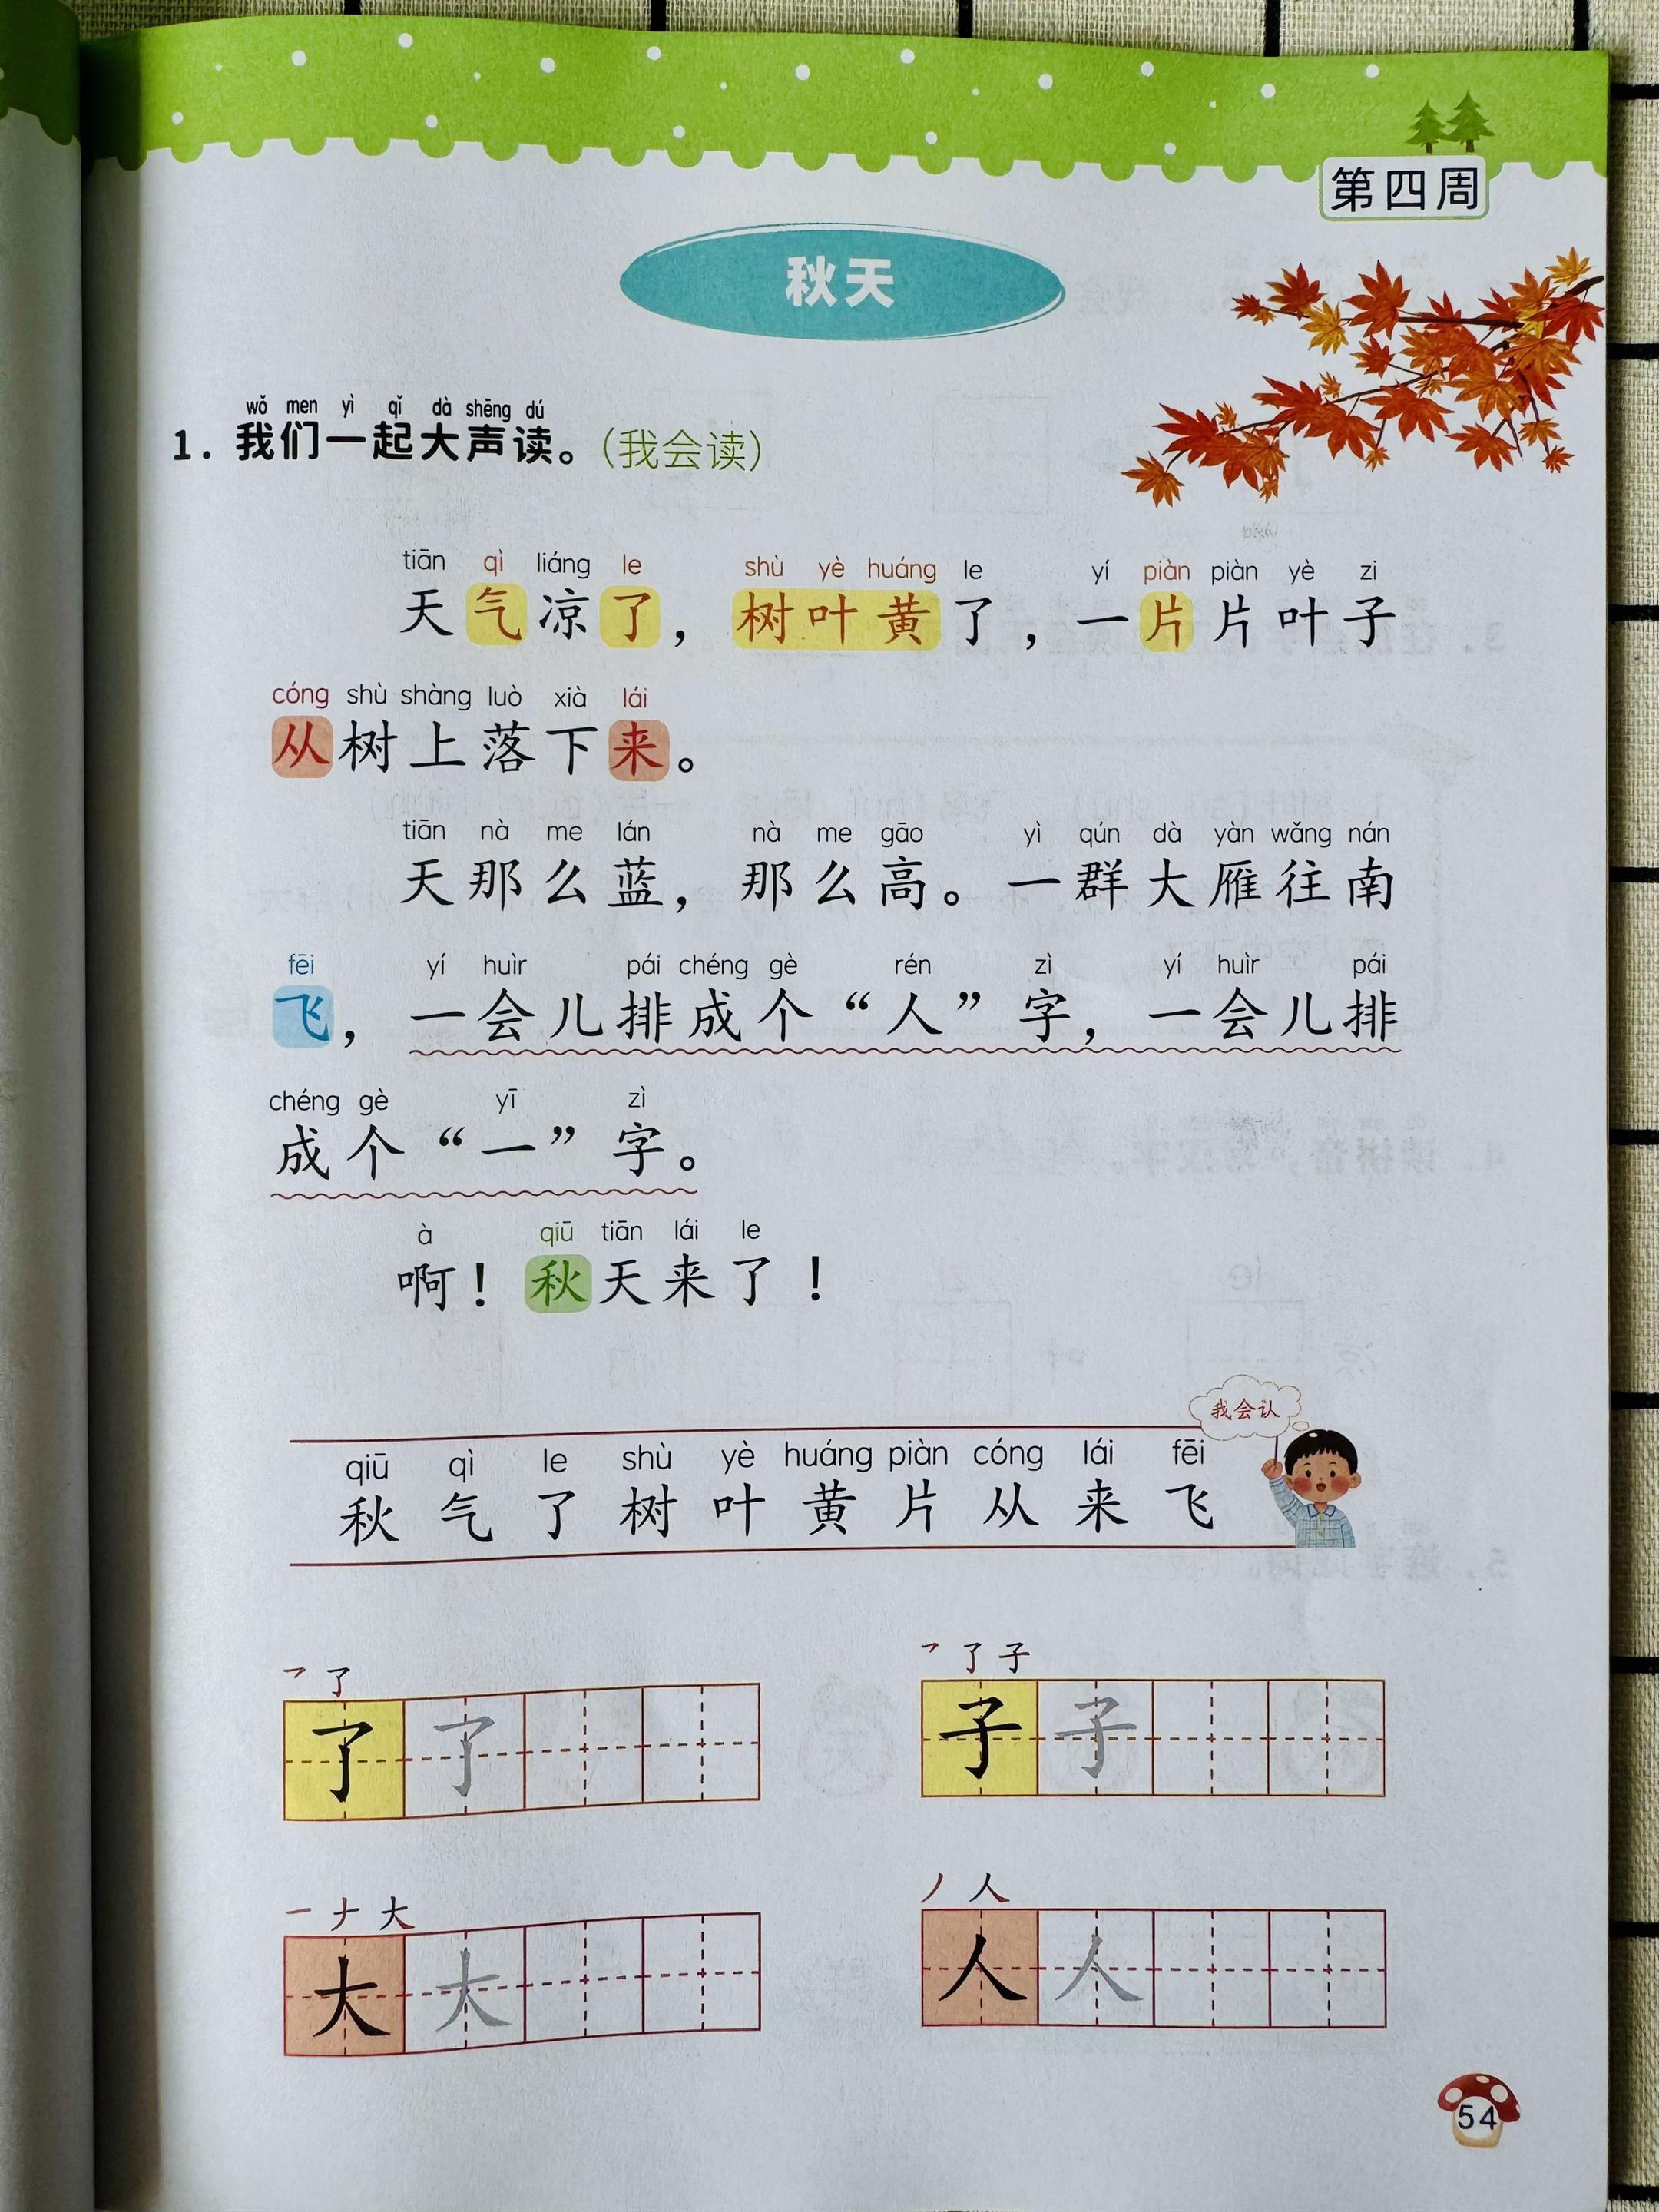 第四周
秋天
wǒ men yì qǐ dà shēng dú
1. 我们一起大声读。（我会读）
tiān qì liáng le shù yè huáng le yí piàn piàn yè zi
天气凉了，树叶黄了，一片片叶子
cóng shù shàng luò xià lái
从树上落下来。
tiān nà me lán nà me gāo yì qún dà yàn wǎng nán
天那么蓝，那么高。一群大雁往南
fēi yí huìr pái chéng gè rén zì yí huìr pái
飞，一会儿排成个“人”字，一会儿排
chéng gè yī zì
成个“一”字。
à qiū tiān lái le
啊！秋天来了！
我会认
qiū qì le shù yè huáng piàn cóng lái fēi
秋 气 了 树 叶 黄 片 从 来 飞
乛 了
了 了
乛 了 子
子 子
一 ナ 大
大 大
丿 人
人 人
54